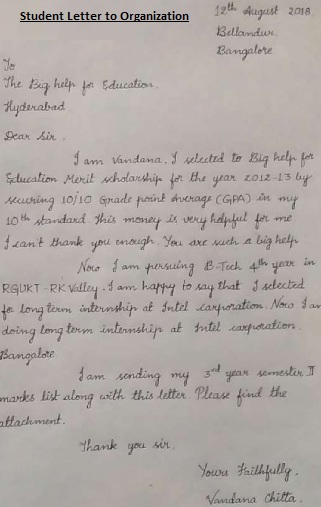 Student Letter to Organization
12th August 2018
Bellandur,
Bangalore
To
The Big help for Education,
Hyderabad
Dear Sir,
I am Vandana. I selected to Big help for
Education Merit scholarship for the year 2012-13 by
securing 10/10 Grade point Average (GPA) in my
10th standard. This money is very helpful for me
I can't thank you enough. You are such a big help
Now I am pursuing B-Tech 4th year in
RGUKT-RK Valley. I am happy to say that I selected
for long term internship at Intel corporation. Now I am
doing long term internship at Intel corporation.
Bangalore
I am sending my 3rd year semester II
marks list along with this letter. Please find the
attachment.
Thank you sir,
Yours Faithfully,
Vandana Chitta.